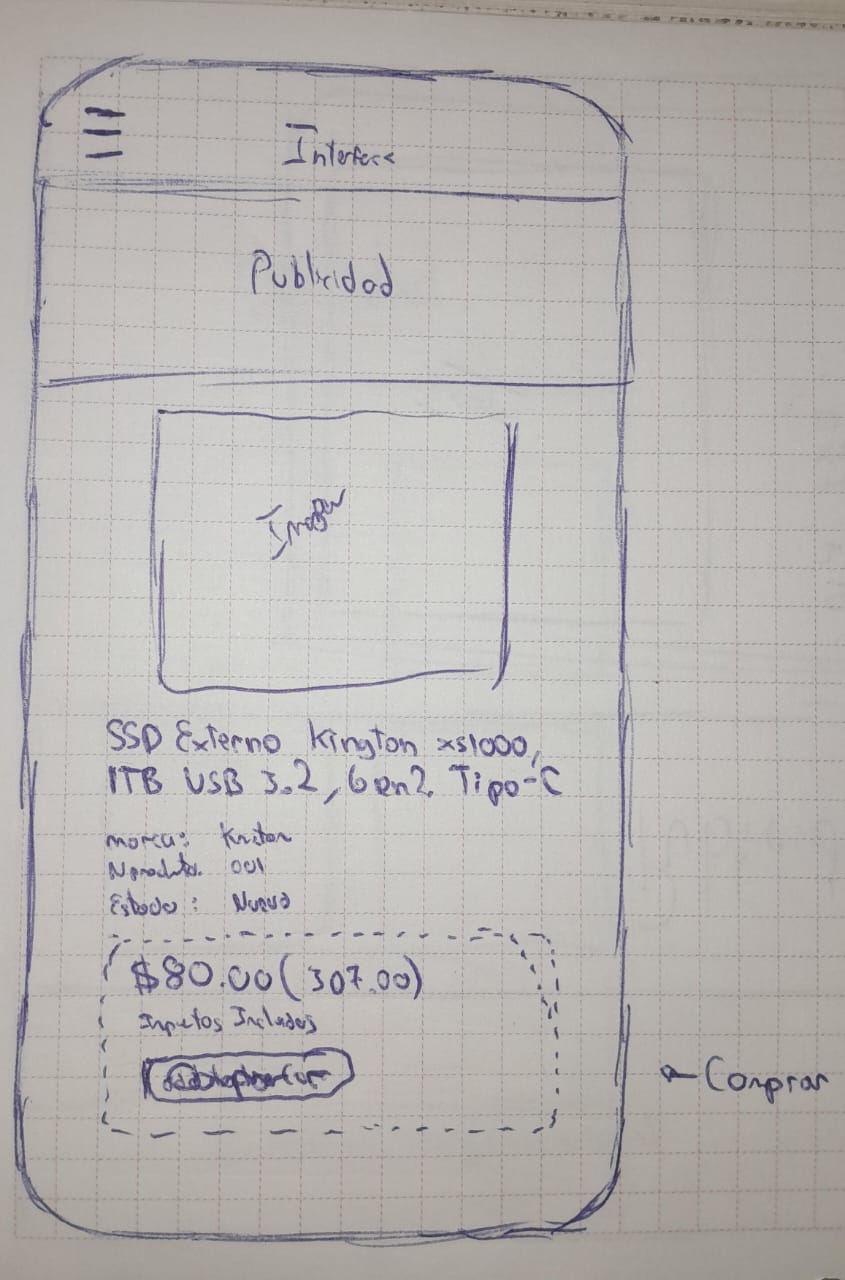 Interface
Publicidad
Imagen
SSD Externo Kington xs1000,
1TB USB 3.2, Gen2. Tipo-C
marca:
N 001
Estado: Nuevo
$80.00 (307.00)
Impetos Incluidos
← Comprar